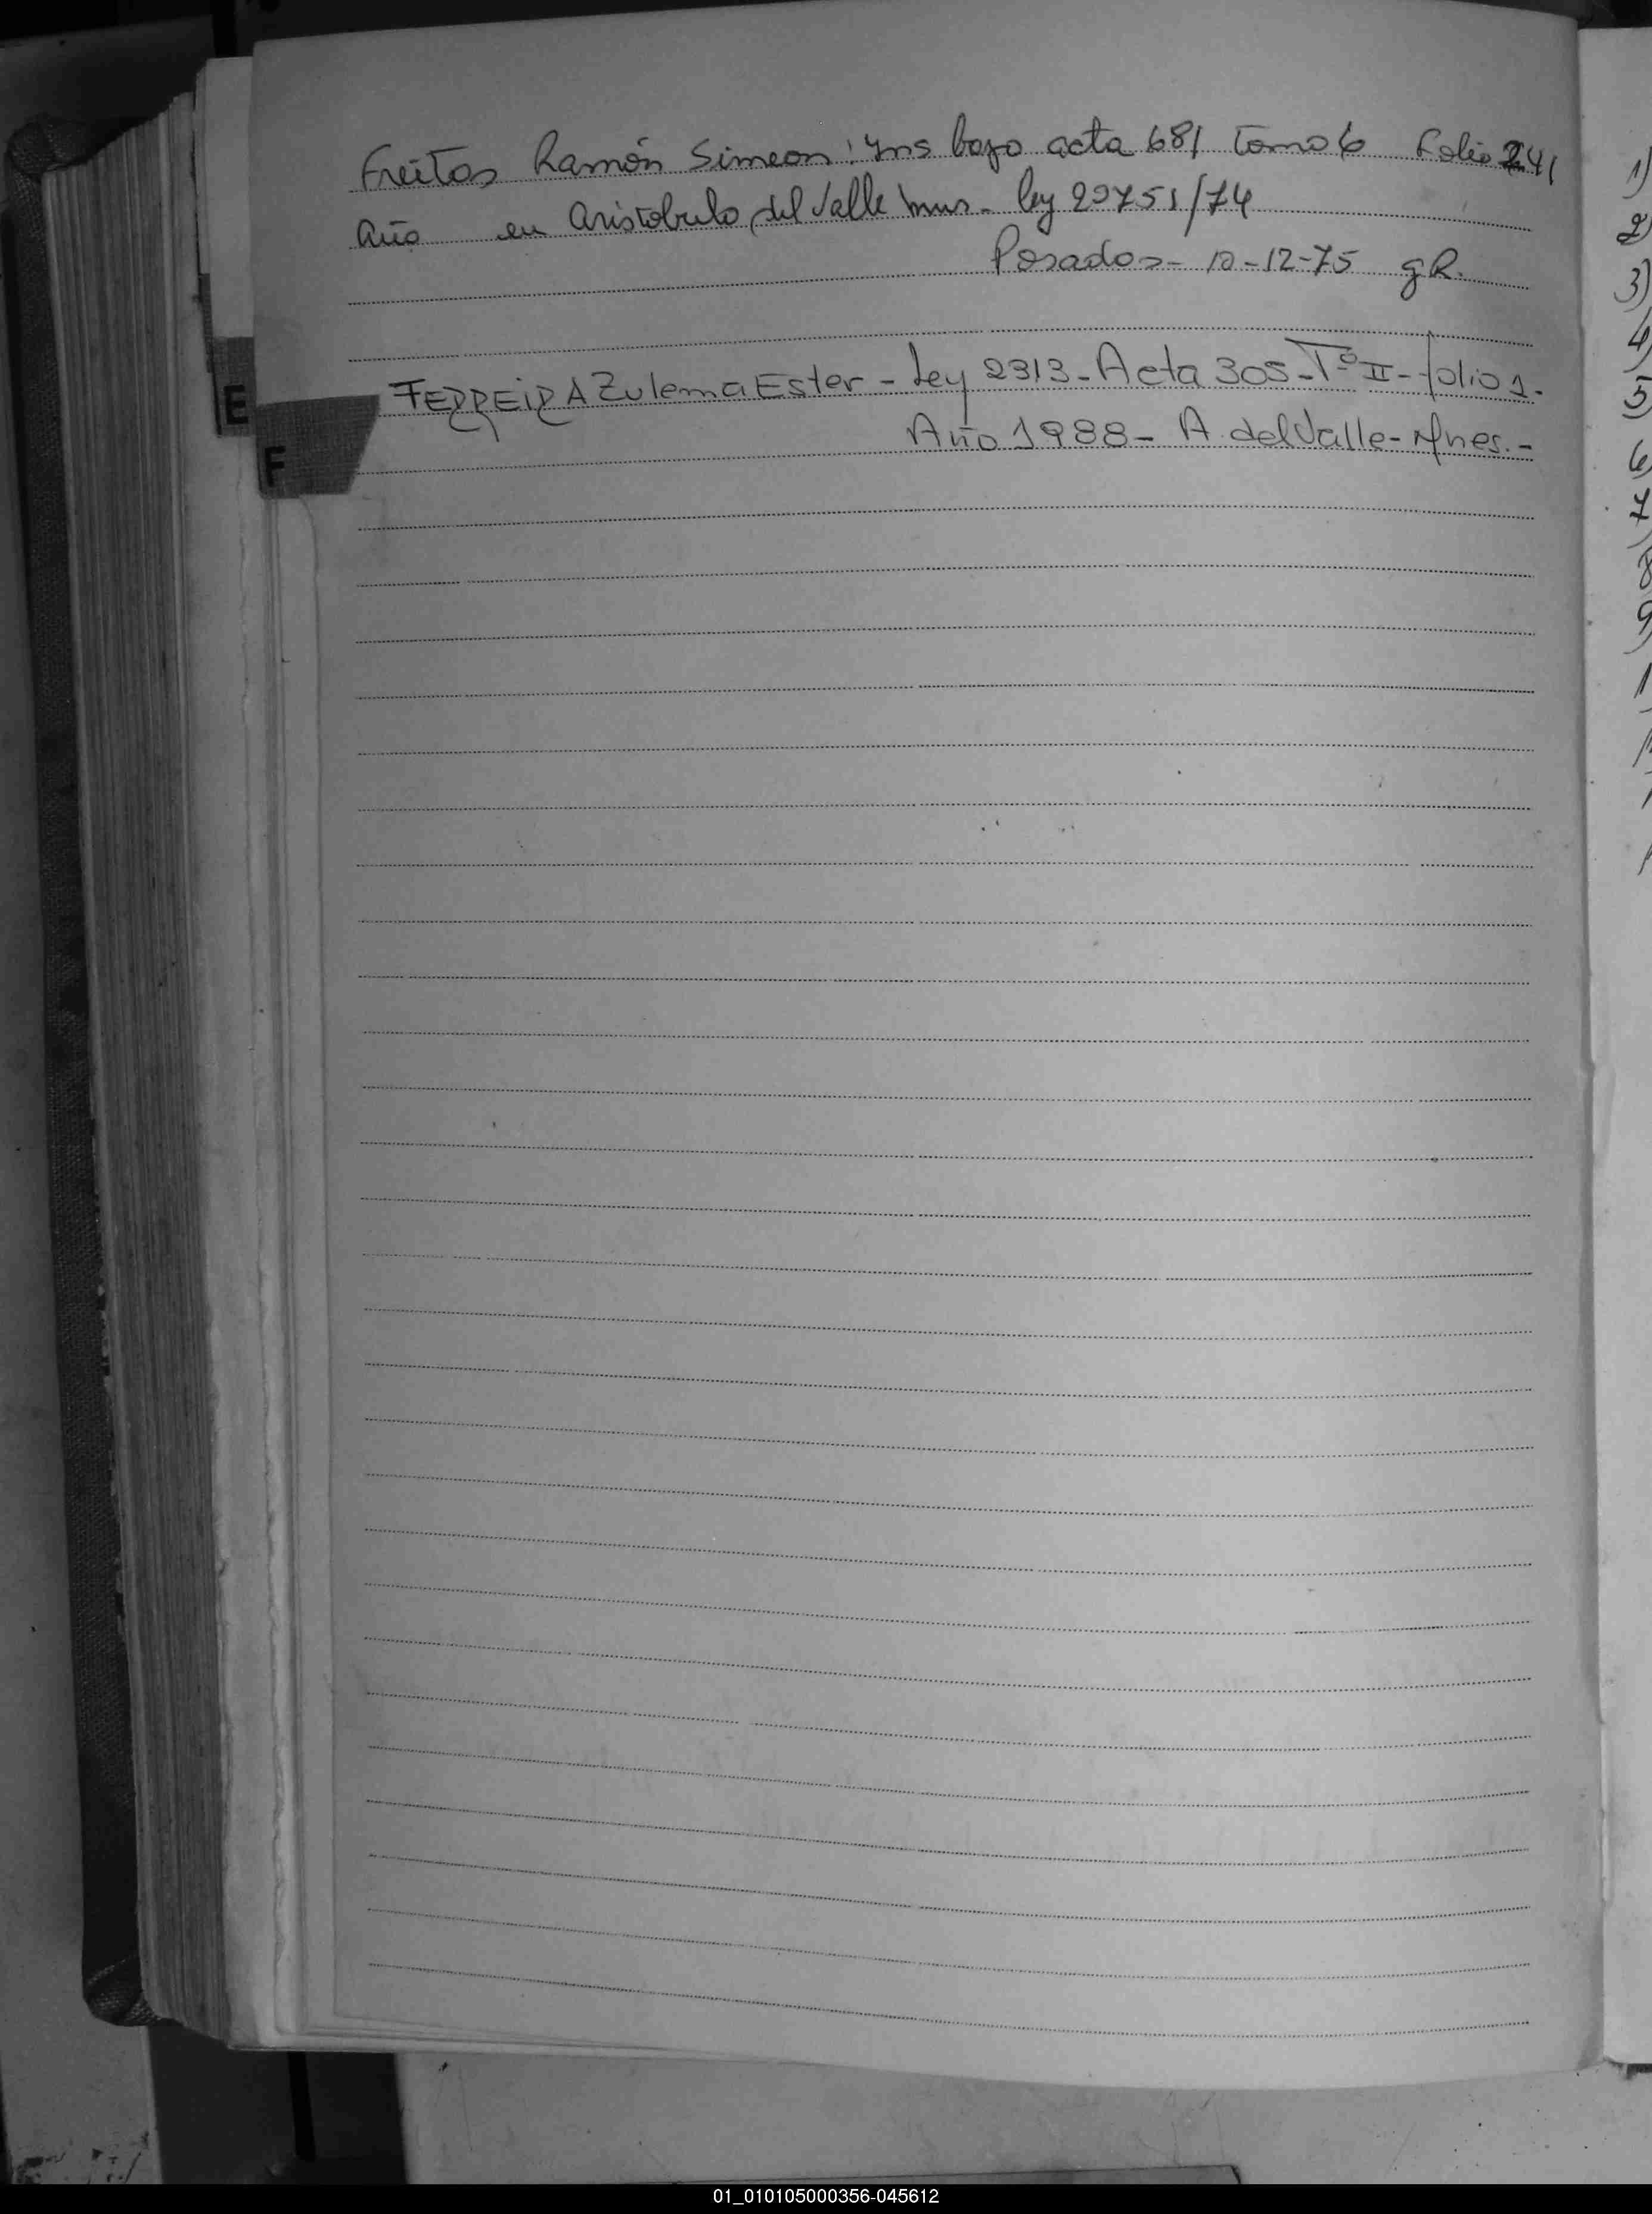 Freitas Ramón Simeon: Ins bajo acta 681 Tomo 6 Folio 241
Año en Aristobulo del Valle Mns- ley 20751/74
Posadas- 10-12-75 gR.
FERREIRA Zulema Ester - Ley 2313 - Acta 305 - Tº II - folio 1.
Año 1988 - A. del Valle - Mnes. -
E
F
1)
2)
3)
4)
5
6)
7)
8
9
01_010105000356-045612